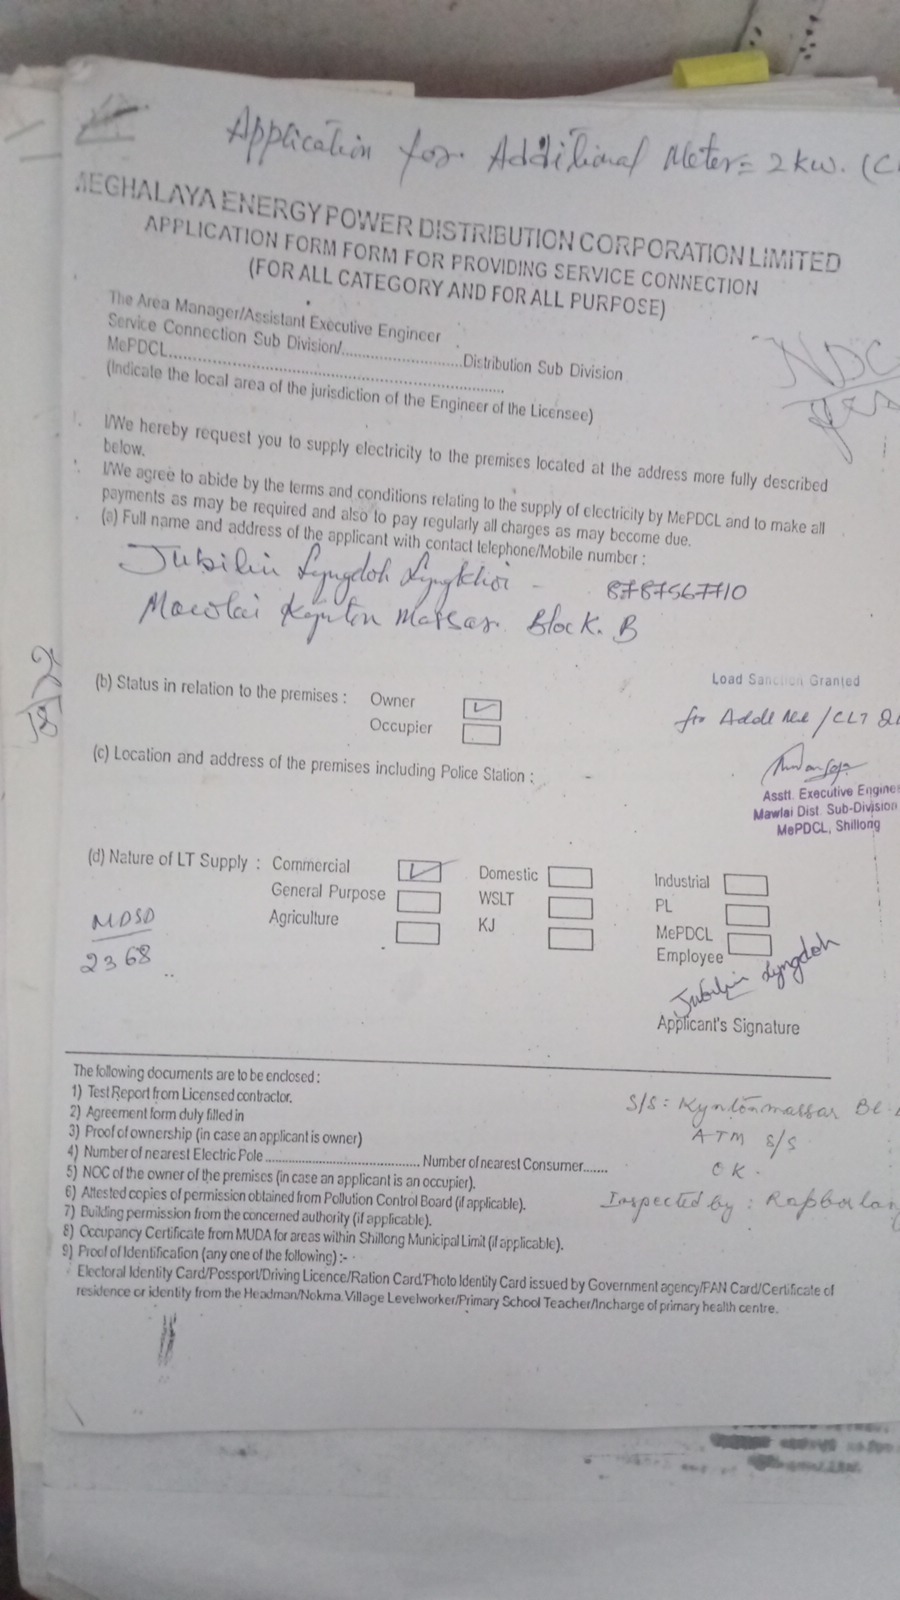 Application for Additional Meter = 2 kw. (C
MEGHALAYA ENERGY POWER DISTRIBUTION CORPORATION LIMITED
APPLICATION FORM FORM FOR PROVIDING SERVICE CONNECTION
(FOR ALL CATEGORY AND FOR ALL PURPOSE)
The Area Manager/Assistant Executive Engineer
Service Connection Sub Division/........................Distribution Sub Division
MePDCL................................................................
(Indicate the local area of the jurisdiction of the Engineer of the Licensee)
NDC
I/We hereby request you to supply electricity to the premises located at the address more fully described
below.
I/We agree to abide by the terms and conditions relating to the supply of electricity by MePDCL and to make all
payments as may be required and also to pay regularly all charges as may become due.
(a) Full name and address of the applicant with contact telephone/Mobile number :
Jubilin Lyngdoh Lyngkhoi - 8787567710
Mawlai Kynton Massar Block. B
(b) Status in relation to the premises : Owner
Occupier
Load Sanction Granted
for Addl
(c) Location and address of the premises including Police Station : -
Asstt. Executive Engine
Mawlai Dist. Sub-Division
MePDCL, Shillong
(d) Nature of LT Supply : Commercial Domestic Industrial
General Purpose WSLT PL
Agriculture KJ MePDCL
Employee
MDSD
2368
Jubilin Lyngdoh
Applicant's Signature
The following documents are to be enclosed :
1) Test Report from Licensed contractor.
2) Agreement form duly filled in
3) Proof of ownership (in case an applicant is owner)
4) Number of nearest Electric Pole ............................................ Number of nearest Consumer.......
5) NOC of the owner of the premises (in case an applicant is an occupier).
6) Attested copies of permission obtained from Pollution Control Board (if applicable).
7) Building permission from the concerned authority (if applicable).
8) Occupancy Certificate from MUDA for areas within Shillong Municipal Limit (if applicable).
9) Proof of Identification (any one of the following) :-
Electoral Identity Card/Possport/Driving Licence/Ration Card/Photo Identity Card issued by Government agency/PAN Card/Certificate of
residence or identity from the Headman/Nokma. Village Levelworker/Primary School Teacher/Incharge of primary health centre.
S/S : Kyntonmassar Bl.
ATM S/S
OK.
Inspected by : Rapborlang